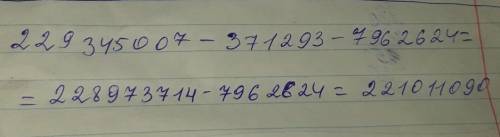 229345007-371293-7962624=
=228973714-7962624=221011090